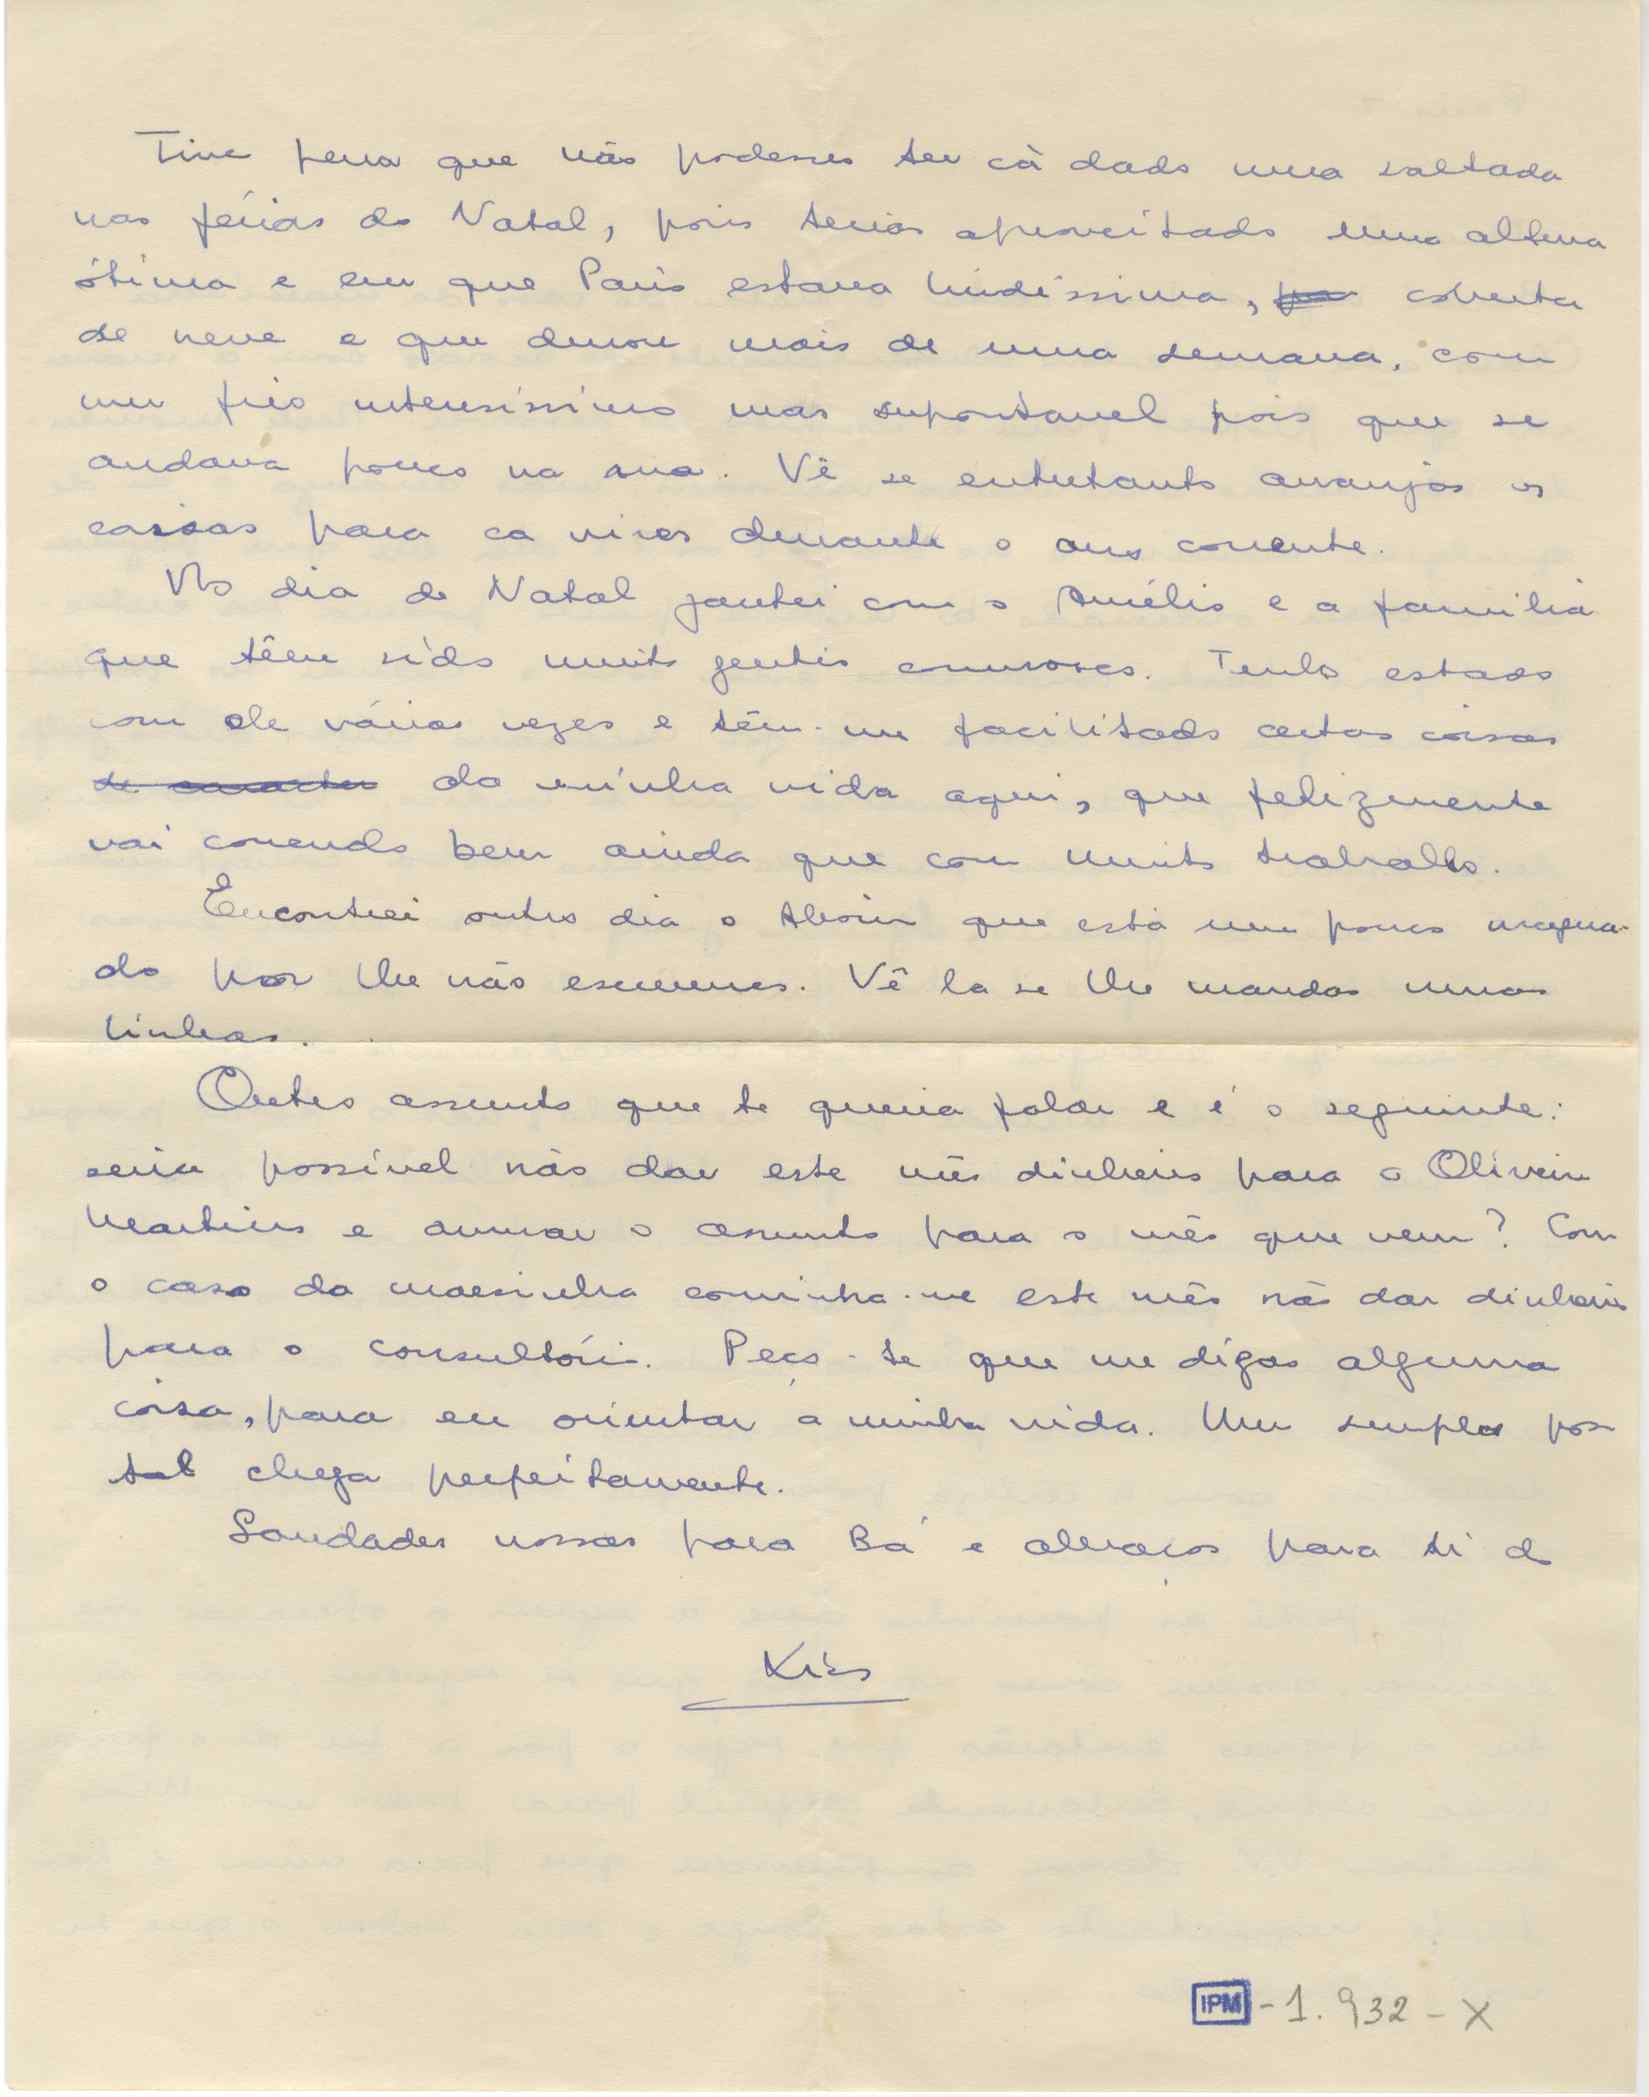 Tive pena que não podesses ter cà dado uma saltada
nas férias do Natal, pois terias aproveitado uma altura
ótima e em que Paris estava lindissima, coberta
de neve e que durou mais de uma semana, com
um frio intensissimo mas suportavel pois que se
andava pouco na rua. Vê se entretanto arranjas as
coisas para ca vires durante o ano corrente.
No dia de Natal jantei com o Amélio e a familia
que têem sido muito gentis connosco. Tenho estado
com ele várias vezes e têm-me facilitado certas coisas
da minha vida aqui, que felizmente
vai correndo bem ainda que com muito trabalho.
Encontrei outro dia o que está um pouco magua-
do por lhe não escreveres. Vê la se lhe mandas umas
linhas.
Outro assunto que te queria falar e é o seguinte:
seria possível não dar este mês dinheiro para o Oliveira
Martins e arrumar o assunto para o mês que vem? Com
o caso da maesinha convinha-me este mês não dar dinheiro
para o consultório. Peço-te que me digas alguma
coisa, para eu orientar a minha vida. Um simples pos
tal chega perfeitamente.
Saudades nossas para Bá e abraços para ti do
IPM - 1.932 - X